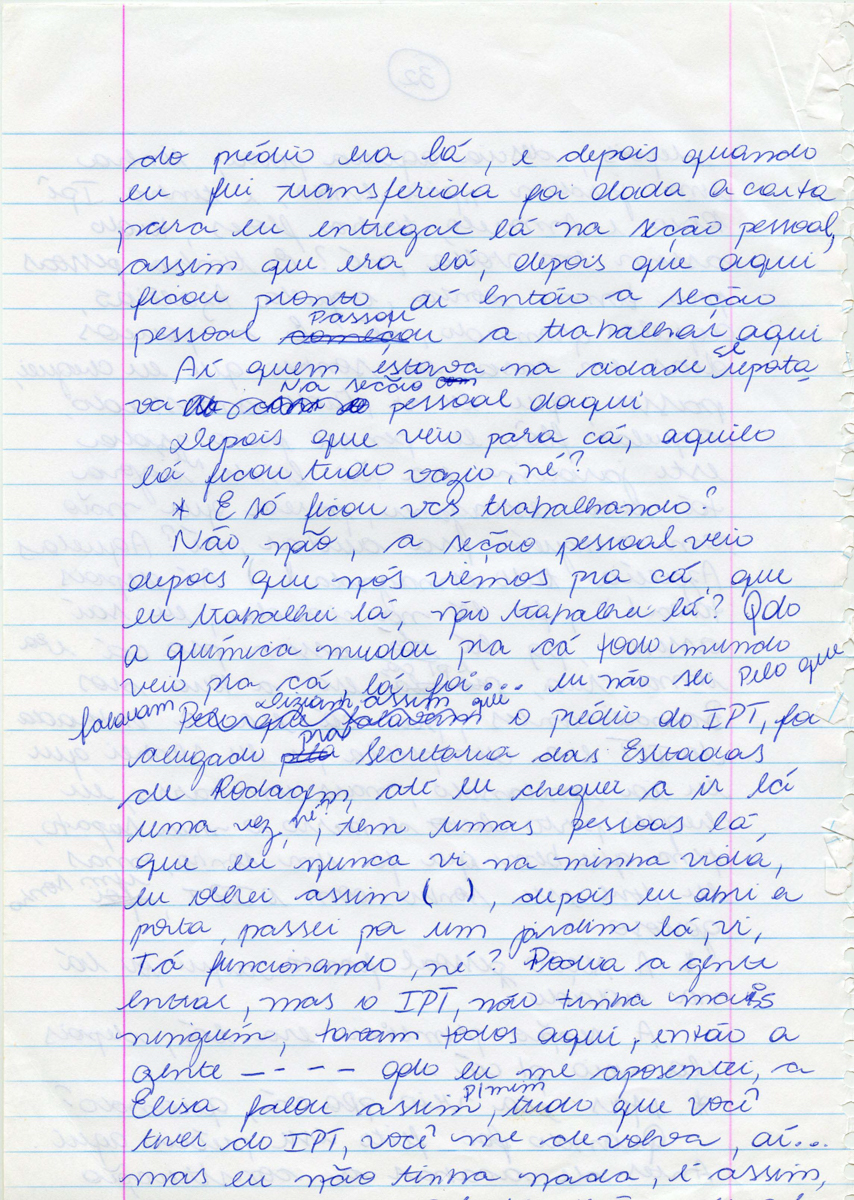 do prédio era lá, e depois quando
eu fui transferida foi dada a carta
para eu entregar lá na seção pessoal,
assim que era lá, depois que aqui
ficou pronto aí então a seção
pessoal começou Passou a trabalhar aqui
Aí quem estava na cidade se reporta
va Na seção pessoal daqui
Depois que veio para cá, aquilo
lá ficou tudo vazio, né?
* E só ficou vcs trabalhando?
Não, não, a seção pessoal veio
depois que nós viemos pra cá, que
eu trabalhei lá, não trabalhei lá? Qdo
a química mudou pra cá todo mundo
veio pra cá lá foi... eu não sei Pelo que
falavam Pelo que falavam diziam, assim que o prédio do IPT, foi
alugado pela pra Secretaria das Estradas
de Rodagem, até eu cheguei a ir lá
uma vez, né?, tem umas pessoas lá
que eu nunca vi na minha vida,
eu olhei assim ( ), depois eu abri a
porta, passei por um jardim lá, vi,
Tá funcionando, né? Podia a gente
entrar, mas o IPT, não tinha mais
ninguém, todos aqui, então a
gente – - – - qdo eu me aposentei, a
Elisa falou assim p/ mim, tudo que você
tiver do IPT, você me devolva, aí...
mas eu não tinha nada, é assim,
32